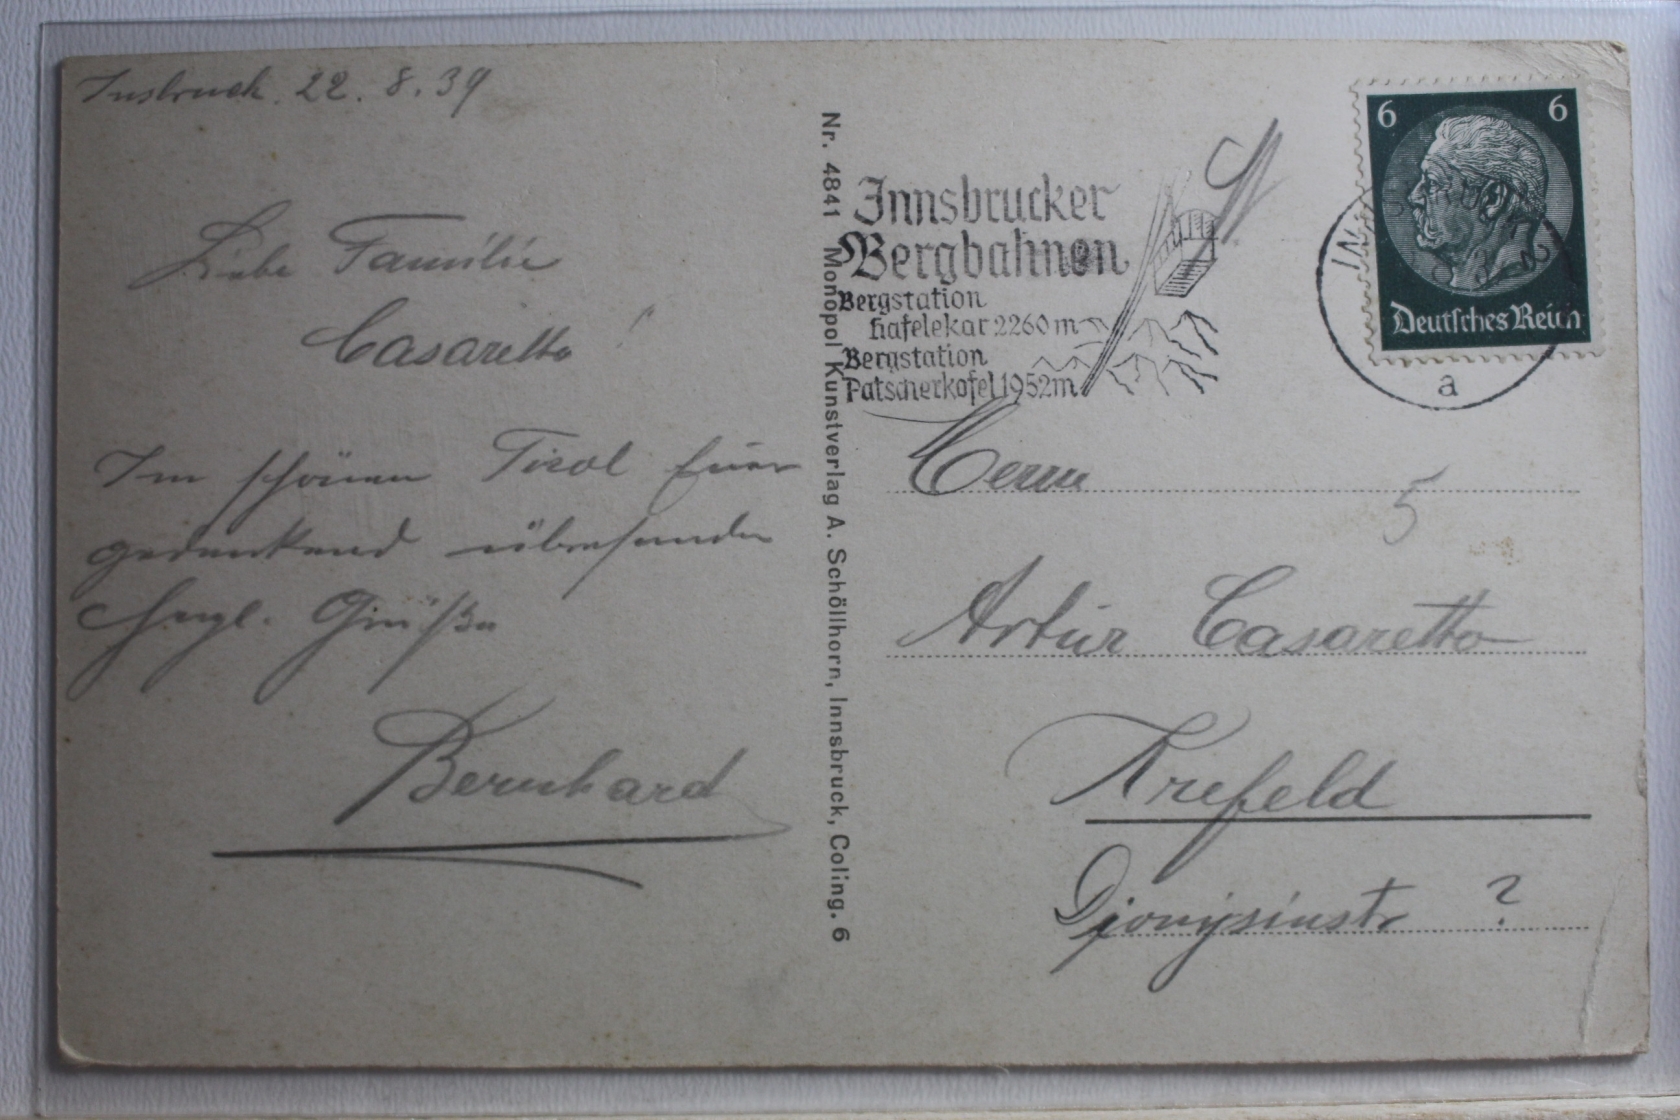 Insbruck. 22. 8. 39
Liebe Familie
Casaretto!
Im schönen Tirol Euer
gedenkend übersende
Hrzl. Grüße
Bernhard
Nr. 4841 Monopol Kunstverlag A. Schöllhorn, Innsbruck, Coling. 6
Innsbrucker
Bergbahnen
Bergstation
Hafelekar 2260 m
Bergstation
Patscherkofel 1952m
6 6
Deutsches Reich
a
Herrn
5
Artur Casaretto
Krefeld
Djonysiusstr ?